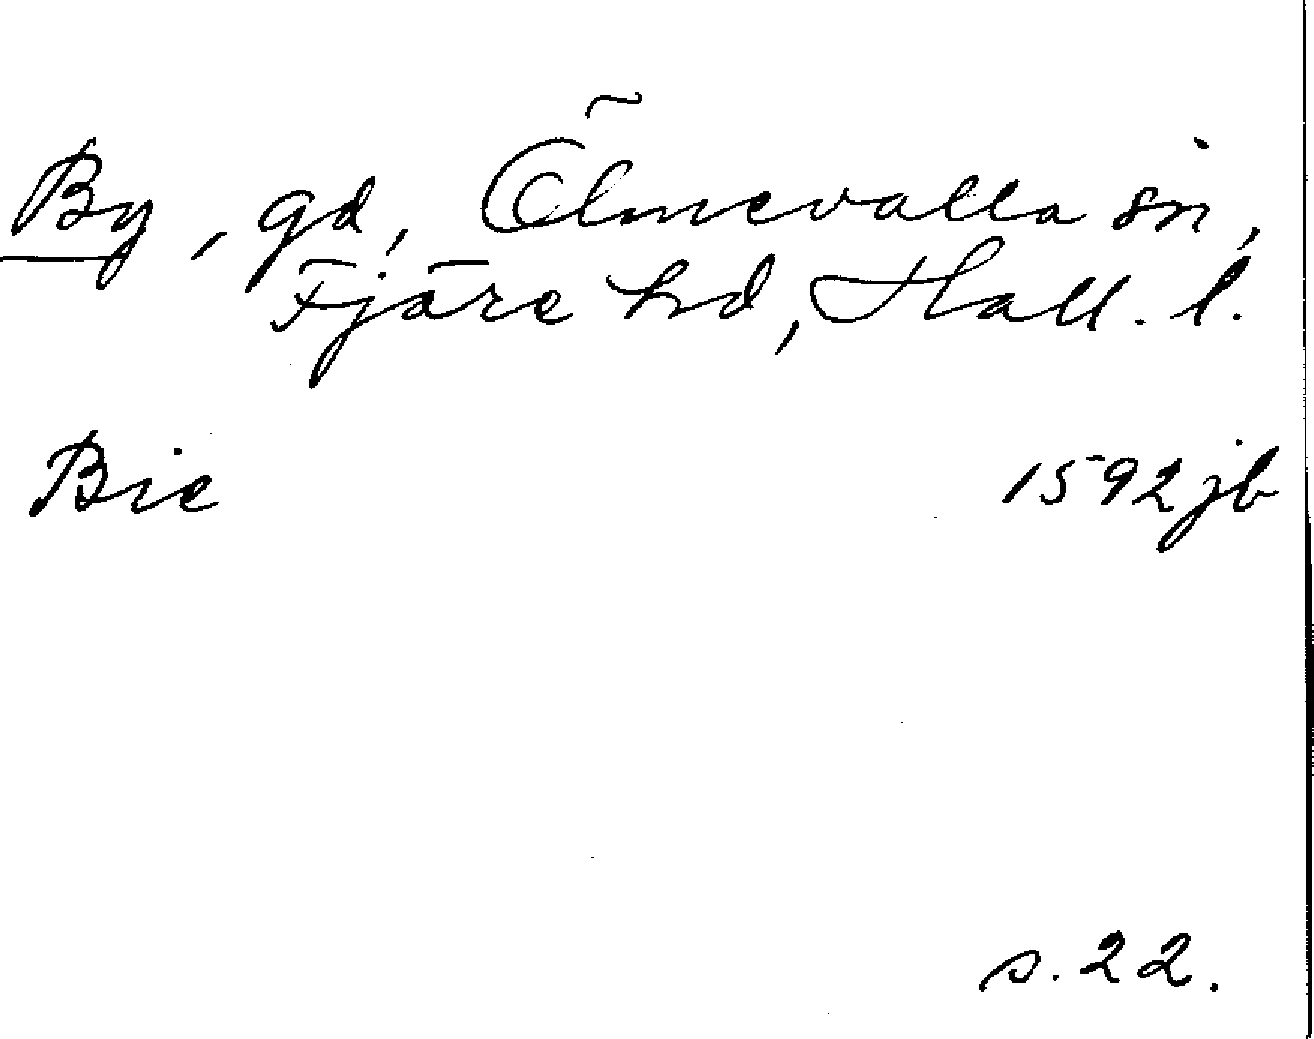 By, gd, Ölmevalla sn,
Fjäre hd, Hall. l.
Bie 1592 jb
s. 22.